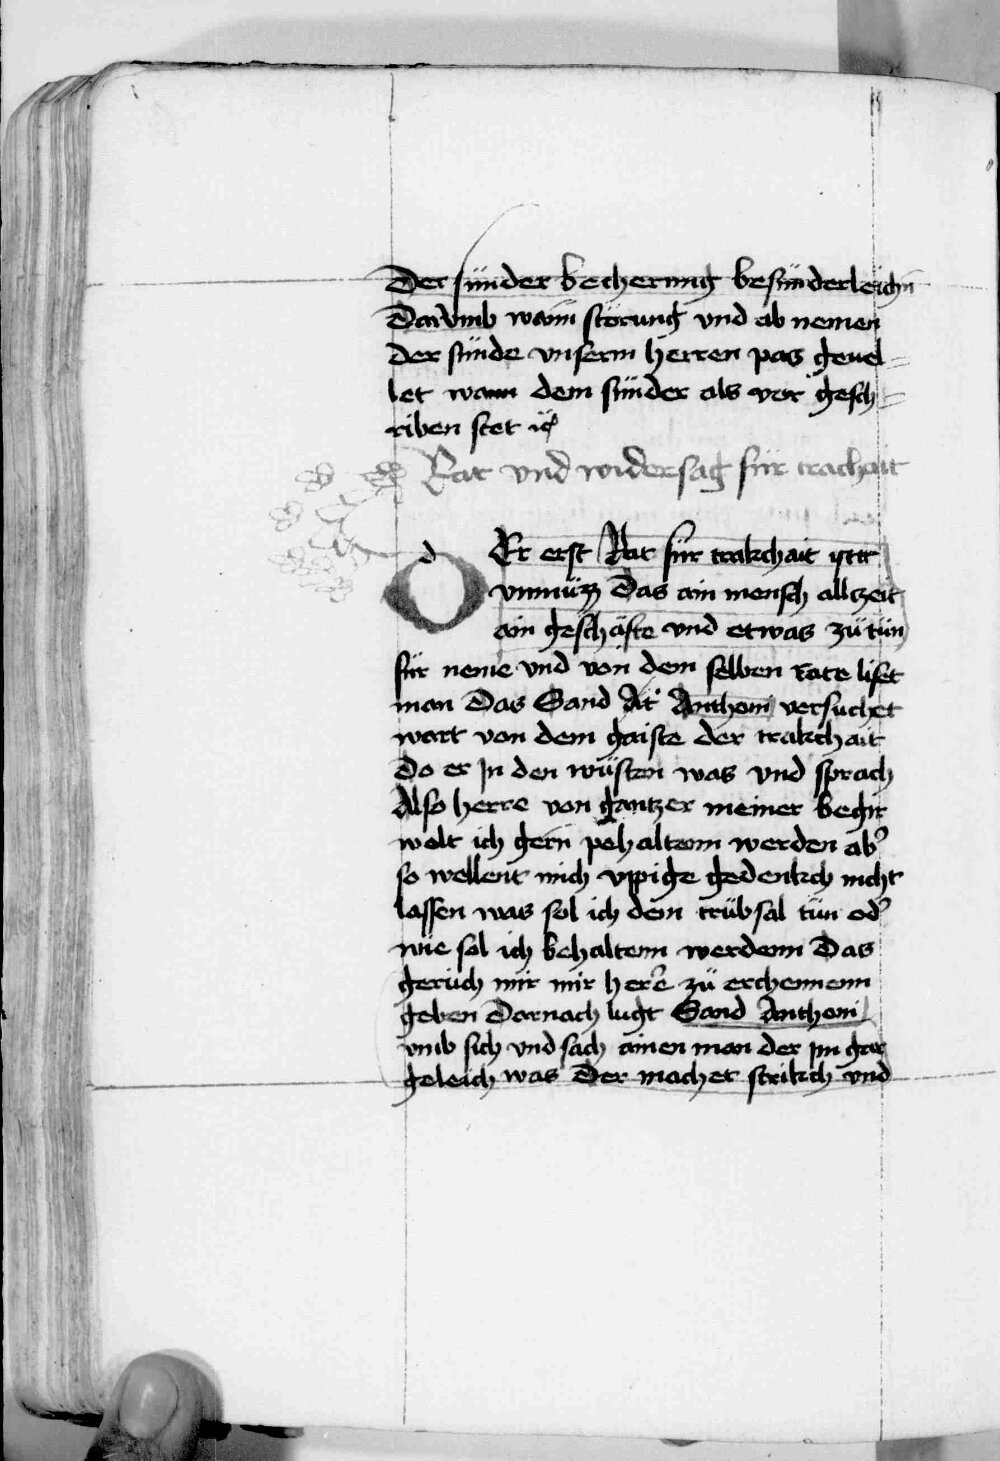 Der sünder becherung besünderleichn
Darumb wann störung vnd ab nemen
der sünde vnserm herren pas geuel=
let wann dem sünder als vor gesch=
riben stet
Rat vnd widersag für trachait
DEr erst Rat für trakchait ist
vnmüzz Das ain mensch allczeit
ain geschäfte vnd etwas zü tün
für neme vnd von dem selben rate liset
man Das Sand Anthoni versuchet
wart von dem gaiste der trakchait
Do er In den wüsten was vnd sprach
Also herre von gantzer meiner begir
wolt ich gern pehaltenn werden ab
so wellent mich vppige gedenkch nicht
lassen was sol ich dem trübsal tün od
wie sol ich behaltenn werdenn Das
geruch mir mir here zü erchennenn
geben Darnach lugt Sand Anthoni
vmb sich vnd sach ainen man der jm gar
geleich was Der machet strikch vnd